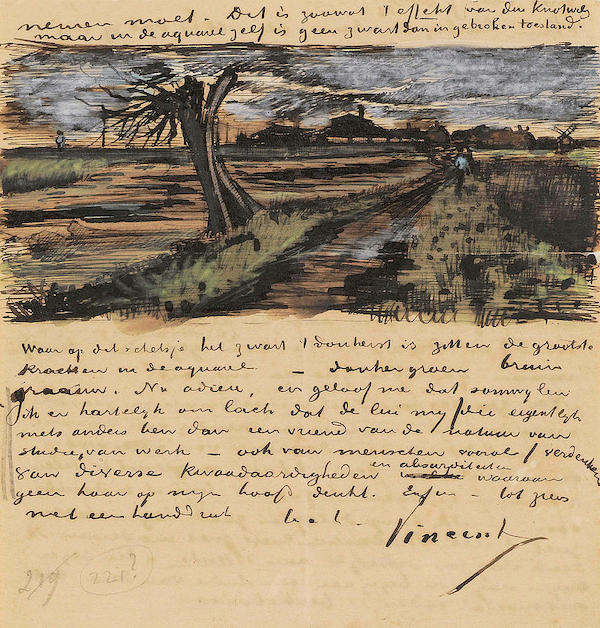 nemen moet. Dit is zoowat 't effekt van den Knotwilg
maar in de aquarel zelf is geen zwart dan in gebroken toestand.
Waar op dit schetsje het zwart 't donkerst is zitten de grootste
krachten in de aquarel – donkergroen bruin
graauw. Nu adieu, en geloof me dat somwylen
ik er hartelyk om lach dat de lui my / die eigentlyk
niets anders ben dan een vriend van de natuur van
studie, van werk – ook van menschen vooral / verdenken
van diverse kwaadaardigheden en absurditeiten waaraan
geen haar op myn hoofd denkt. Enfin – tot ziens
met een handdruk t. à t.
Vincent
229
221?